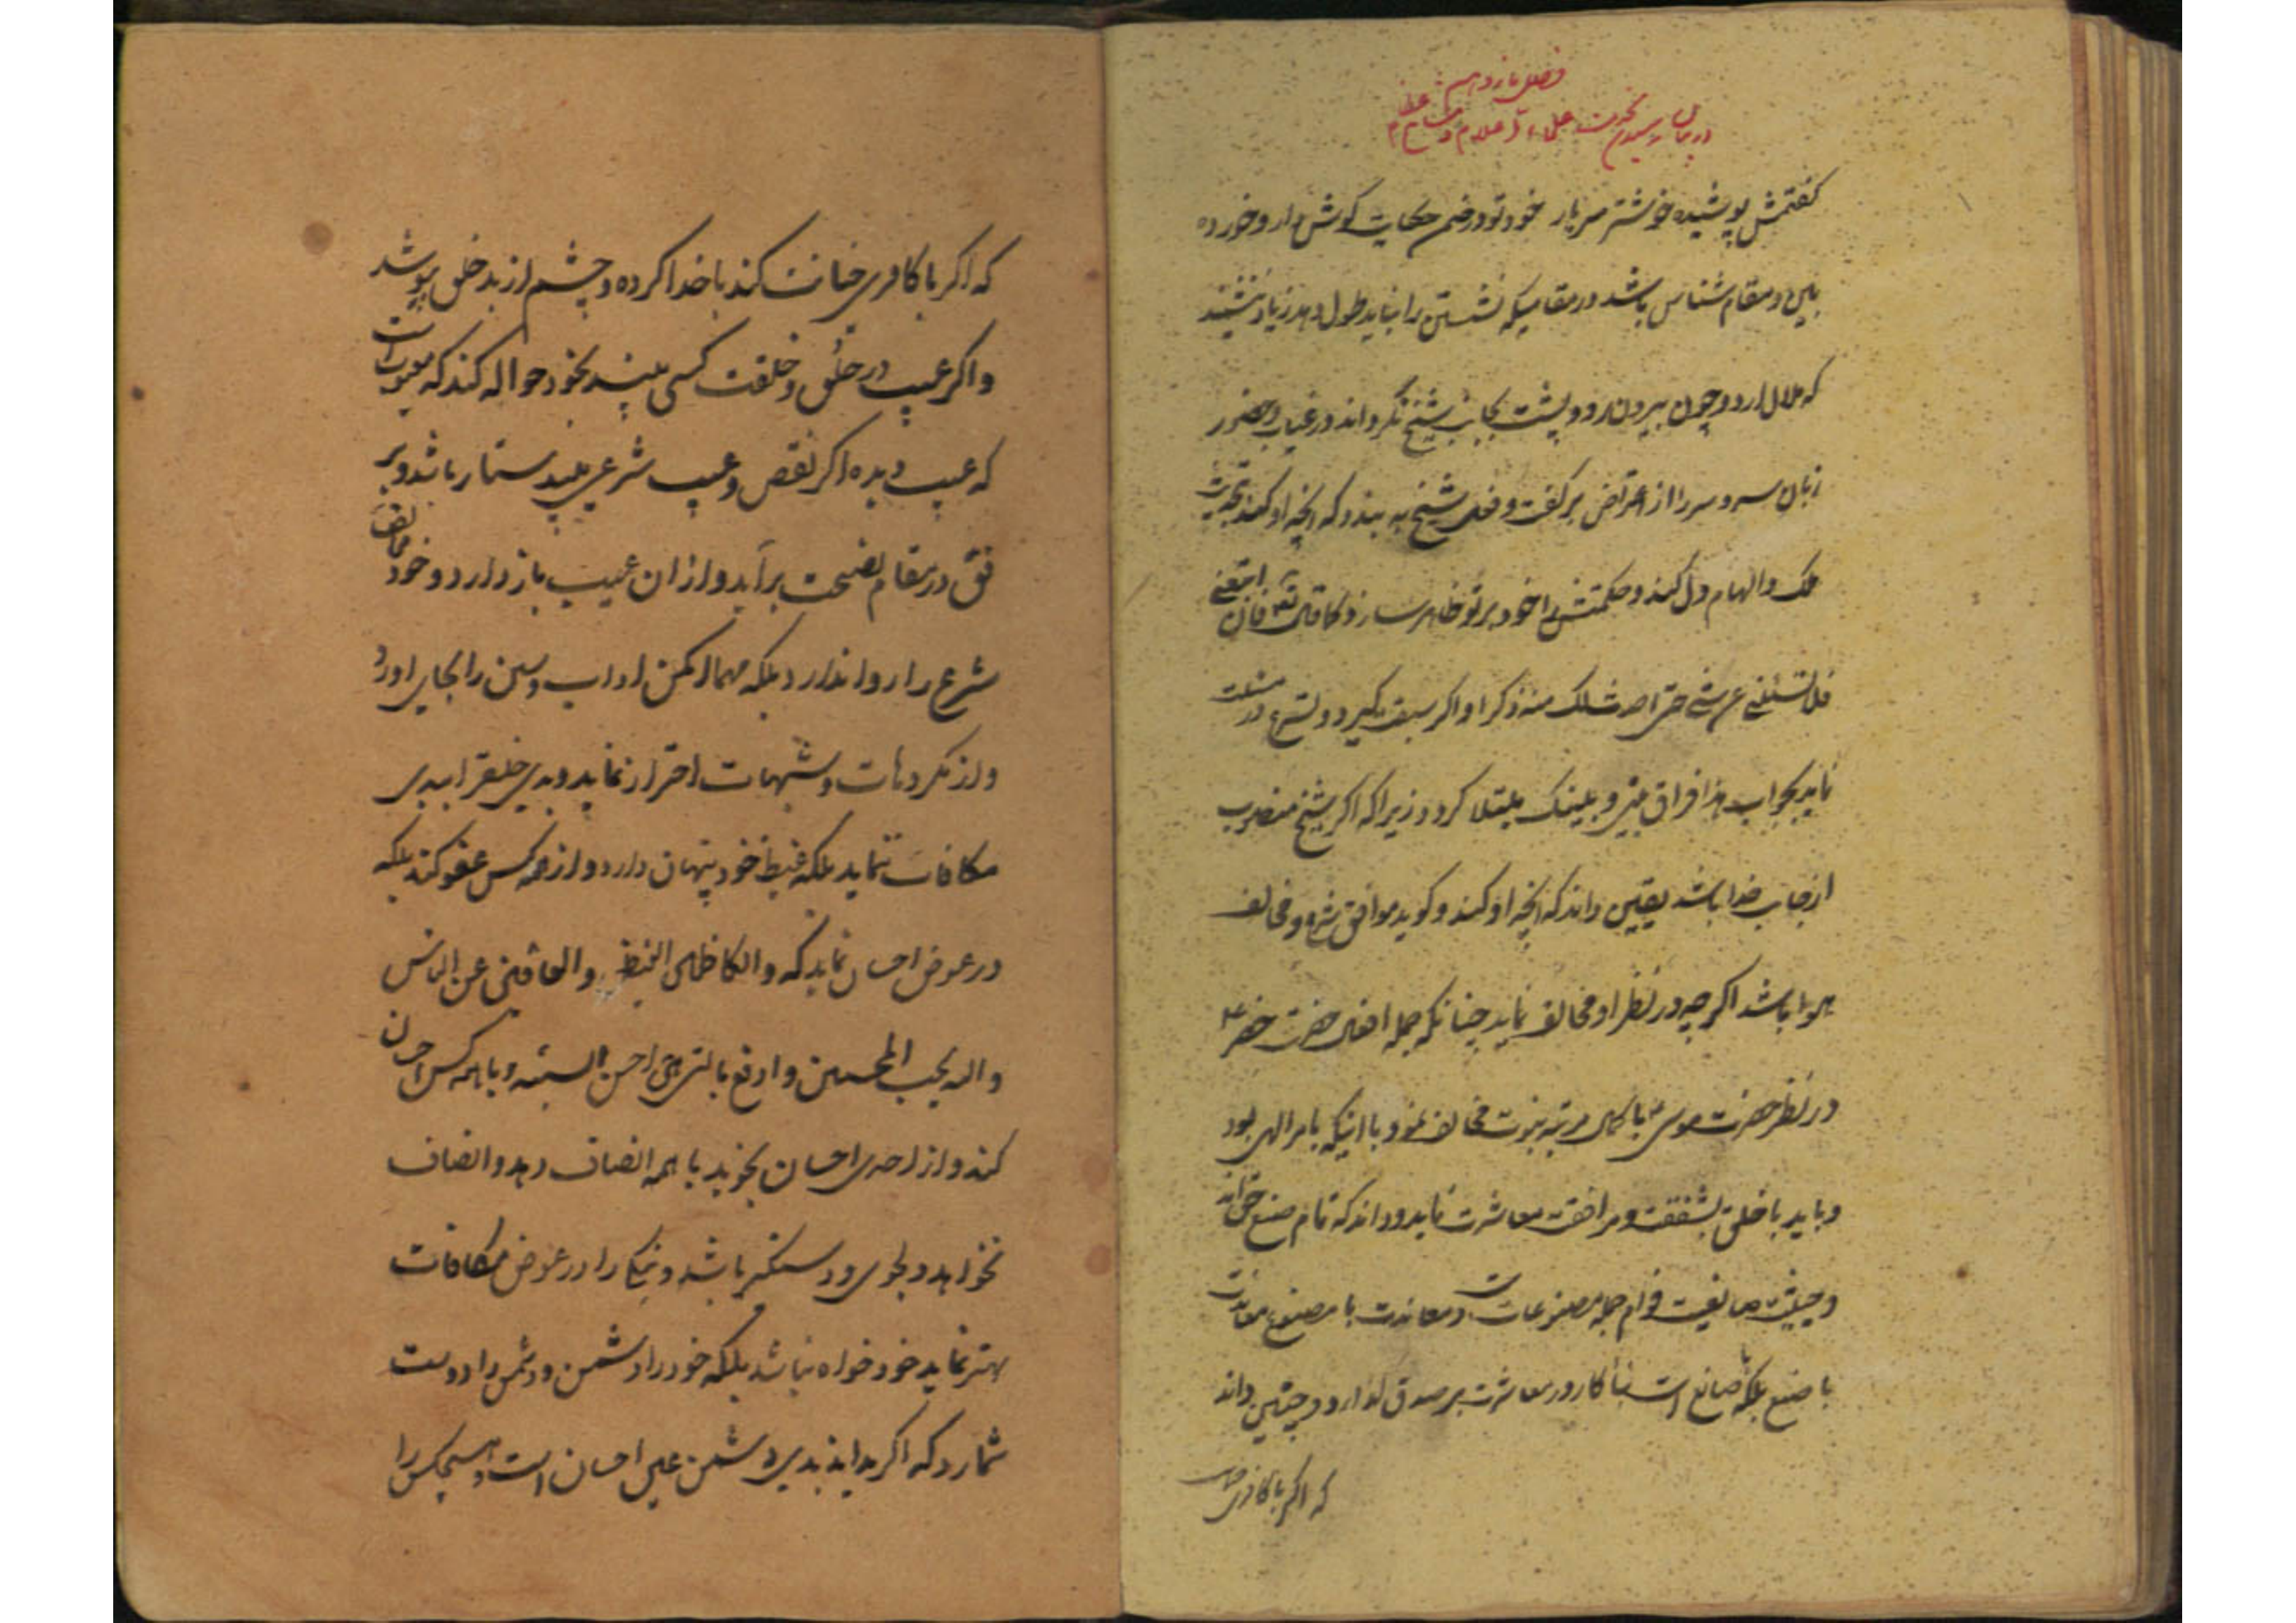 فصل یازدهم
در بیان رسیدن بخدمت علماء اعلام و مشایخ عظام
گفتمش پوشیده خوشتر سر یار خود تو در ضمن حکایت گوش دار و خورده
بین و مقام شناس باشد در مقامیکه نشستن را نباید طول دهد زیاد ننشیند
که ملال ارد و چون بیرون رود پشت بجانب شیخ نگرداند در غیاب و حضور
زبان سر و سر را از اعتراض بر گفت و فعل شیخ به بندد که انچه او کند بتحریک
ملک و الهام دل کند و حکمتش را خود بر تو ظاهر سازد کما قال تع فان اتبعتنی
فلا تسئلنی عن شیء حتی احدث لک منه ذکرا و اگر سبقت گیرد و تسرع در مسئلت
نماید بجواب هذا فراق بینی و بینک مبتلا گردد زیرا که اگر شیخ منصوب
از جانب خدا باشد یقین داند که انچه او کند و گوید موافق شرع و مخالف
هوا باشد اگر چه در نظر او مخالف نماید چنانکه جمله افعال حضرت خضر ع
در نظر حضرت موسی ع با کمال مرتبه نبوت مخالف نمود با اینکه بامر الهی بود
و باید با خلق بشفقت و مرافقت معاشرت نماید و داند که تمام صنع حق‌اند
و حیثیت صانعیت قوام جمله مصنوعات است و معاندت با مصنوع معاندت
با صنع بلکه با صانع است بنا کار در معاشرت بر صدق گذارد و چنین داند
که اگر با کافری خیانت
که اگر با کافری خیانت کند با خدا کرده و چشم از بد خلق پوشد
و اگر عیب در خلق و خلقت کسی بیند بخود حواله کند که معیوب است
که عیب دیده اگر نقص و عیب شرعی بیند ستار باشد و بر
فق در مقام نصیحت برآید و از ان عیب باز دارد و خود مخالف
شرع را روا ندارد بلکه مهما امکن اداب و سنن را بجای اورد
و از مکروهات و شبهات احتراز نماید و بدی خلق را ببدی
مکافات ننماید بلکه غیظ خود پنهان دارد و از همه کس عفو کند بلکه
در عوض احسان نماید که والکاظمین الغیظ والعافین عن الناس
والله یحب المحسنین و ادفع بالتی هی احسن السیئه و با همه کس احسان
کند و از احدی احسان نجوید با همه انصاف دهد و انصاف
نخواهد دلجوی و دستگیر باشد و نیکی را در عوض مکافات
بهتر نماید خود خواه نباشد بلکه خود را دشمن و دشمن را دوست
شمارد که اگر بداند بدی دشمن عین احسان است و هیچکس را